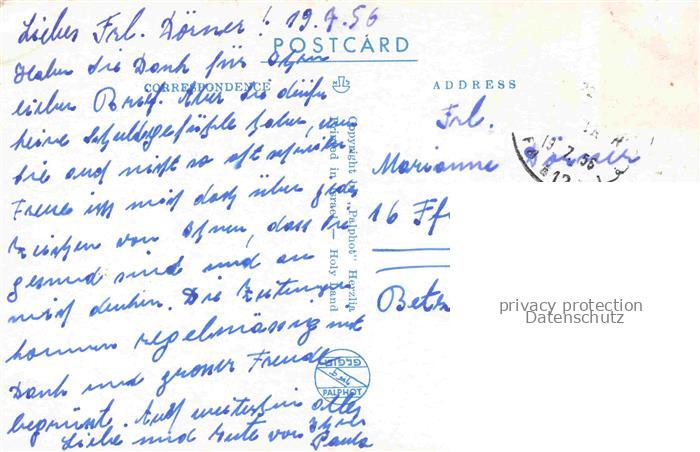 Liebes Frl. Dörner! 19.7.56
POSTCARD
Haben Sie Dank für Ihren
CORRESPONDENCE
ADDRESS
lieben Brief. Aber Sie dürfen
keine Schuldgefühle haben, wenn
Sie auch nicht so oft schreiben.
Freue ich mich doch über jedes
Zeichen von Ihnen, dass Sie
gesund sind und an
mich denken. Die Zeitungen
kommen regelmässig mit
Dank und grosser Freude
begrüsst. Auf weiterhin alles
Liebe und Gute von Ihrer
Paula
Copyright "Palphot" Herzlia
Printed in Israel — Holy Land
פלפוט
PALPHOT
Frl.
Marianne Dörner
16 Ff
Betz
19.7.56
12
privacy protection
Datenschutz